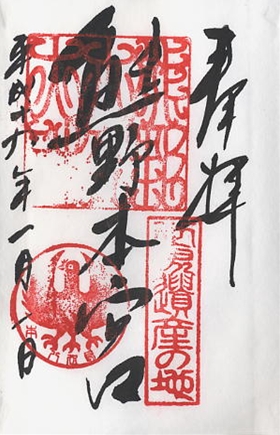 奉拝
世界遺産の地
熊野本宮
平成十九年一月一日